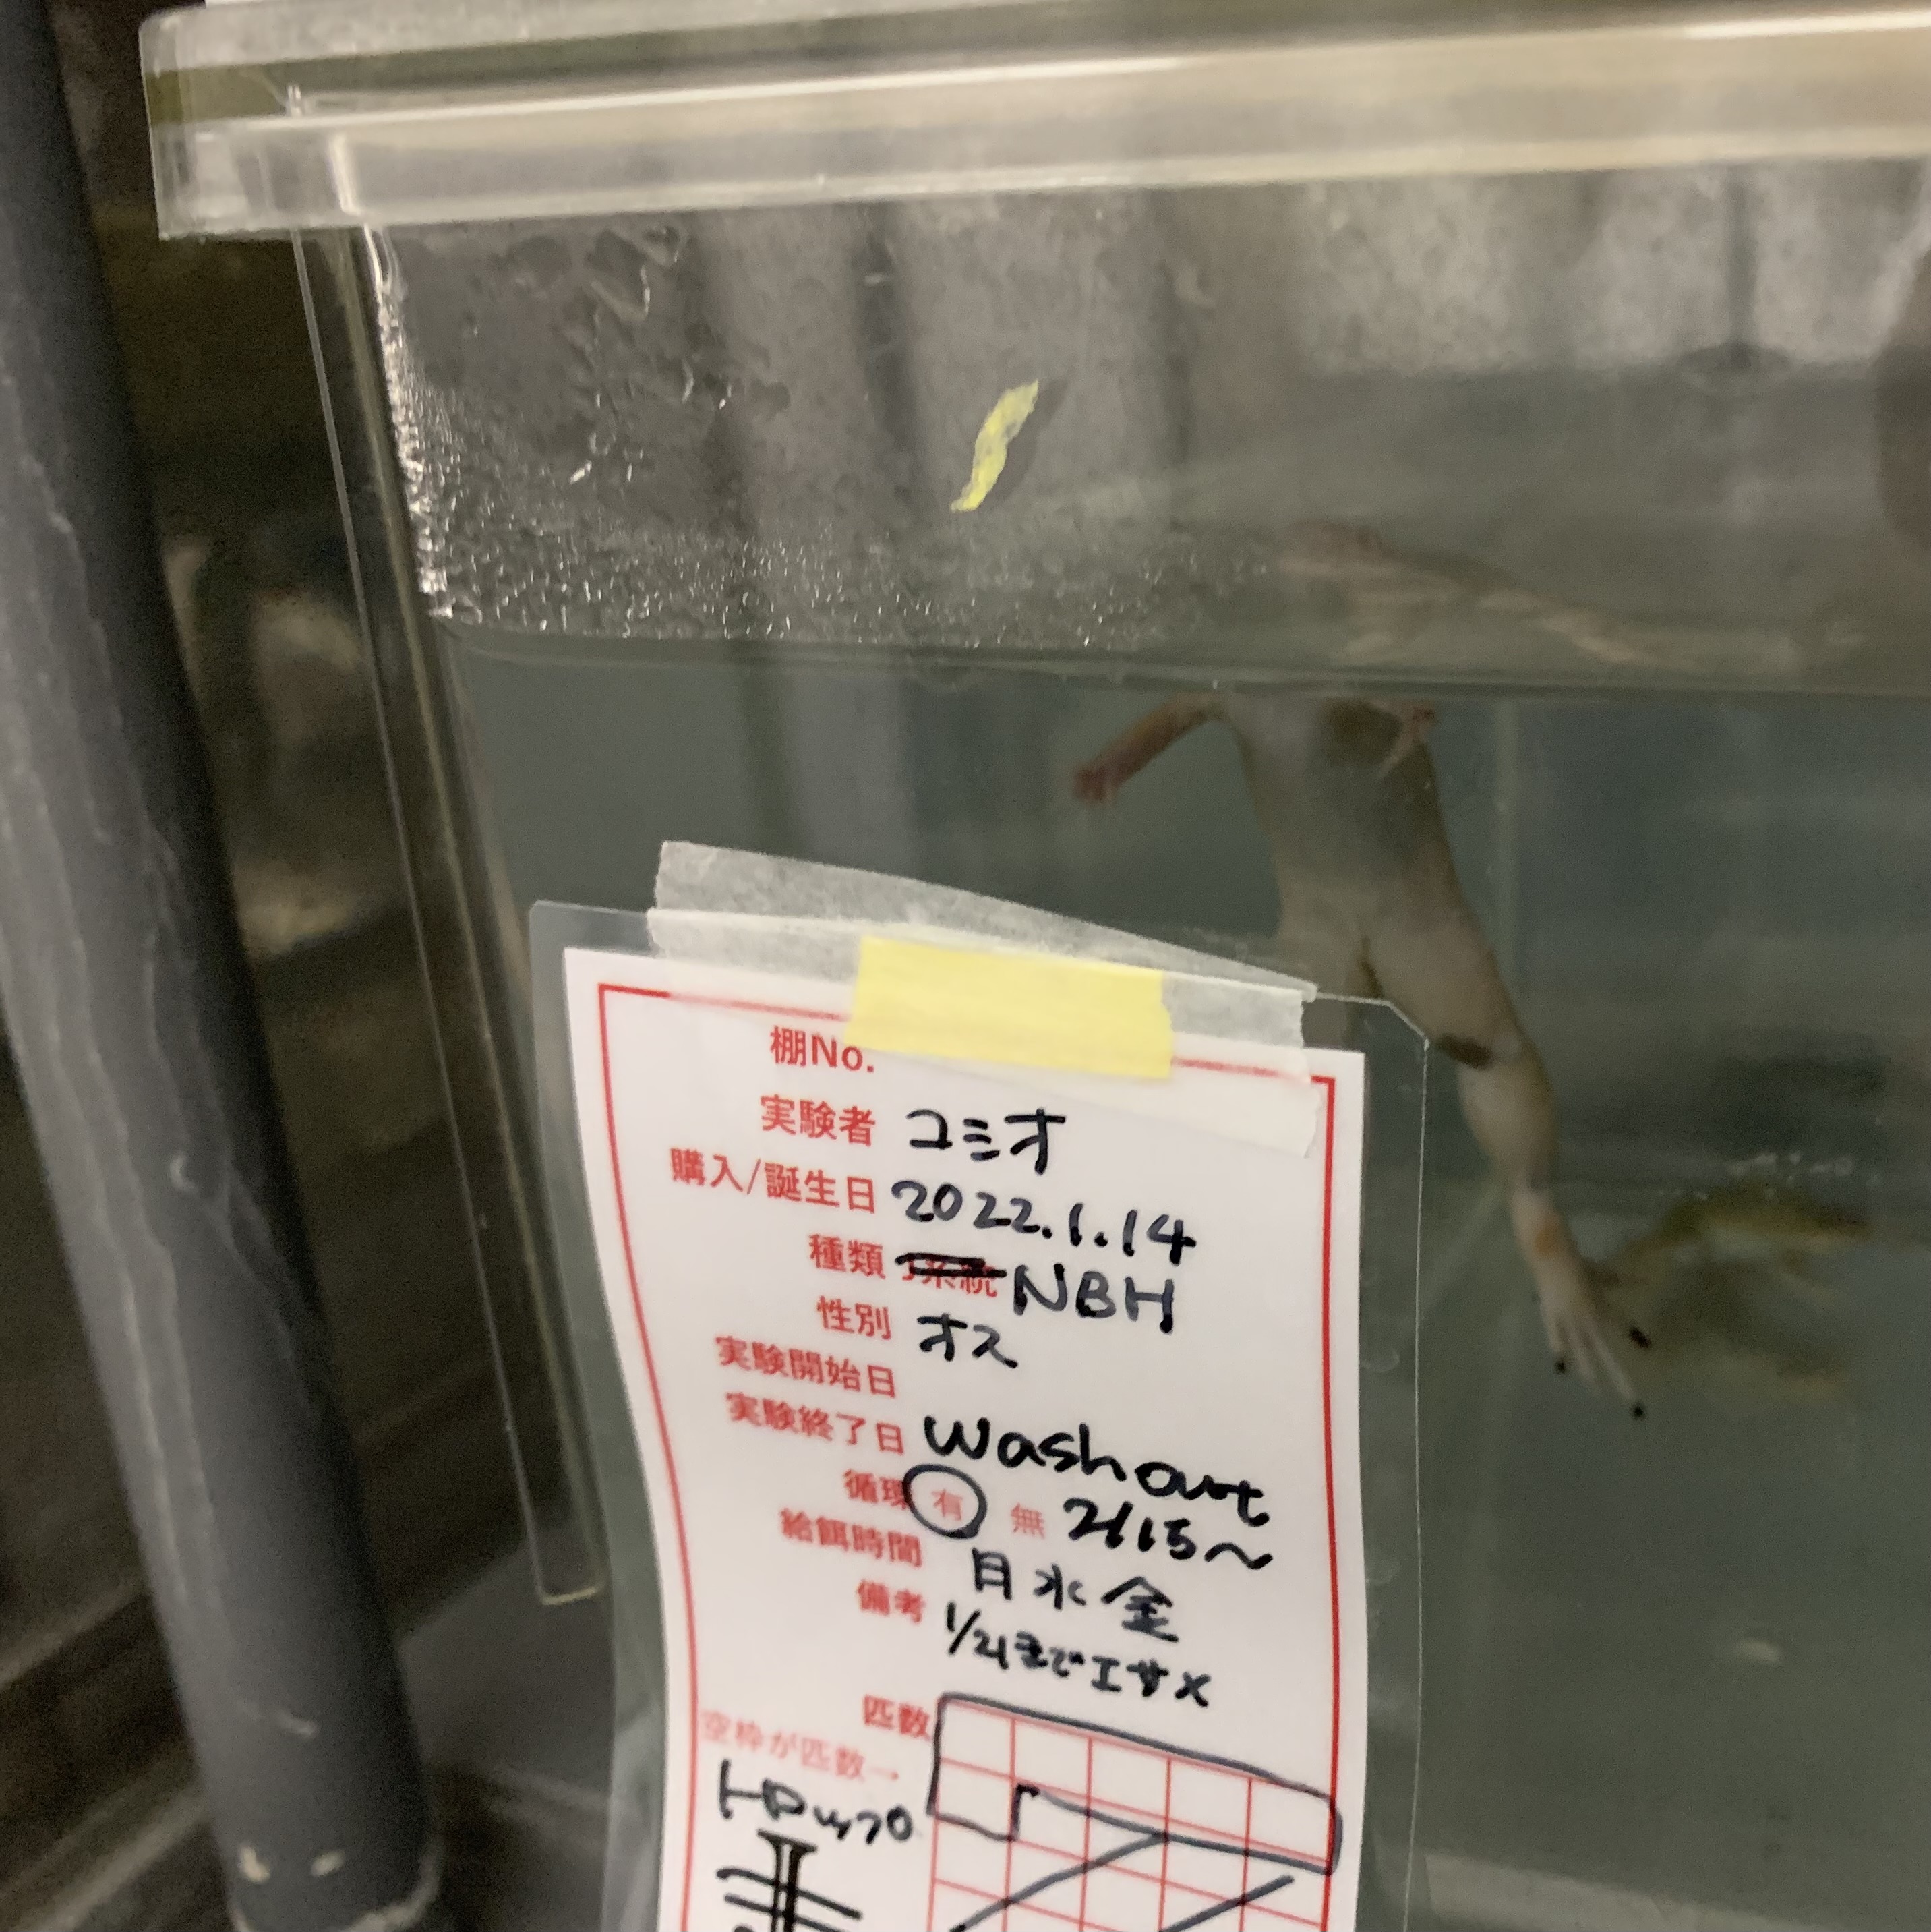 棚No.
実験者 ユシオ
購入/誕生日 2022.1.14
種類 系統 NBH
性別 オス
実験開始日
実験終了日 Wash out
循環 有 無 2/15～
給餌時間 月 水 金
備考 1/21までエサ×
匹数
空枠が匹数→
トロップ